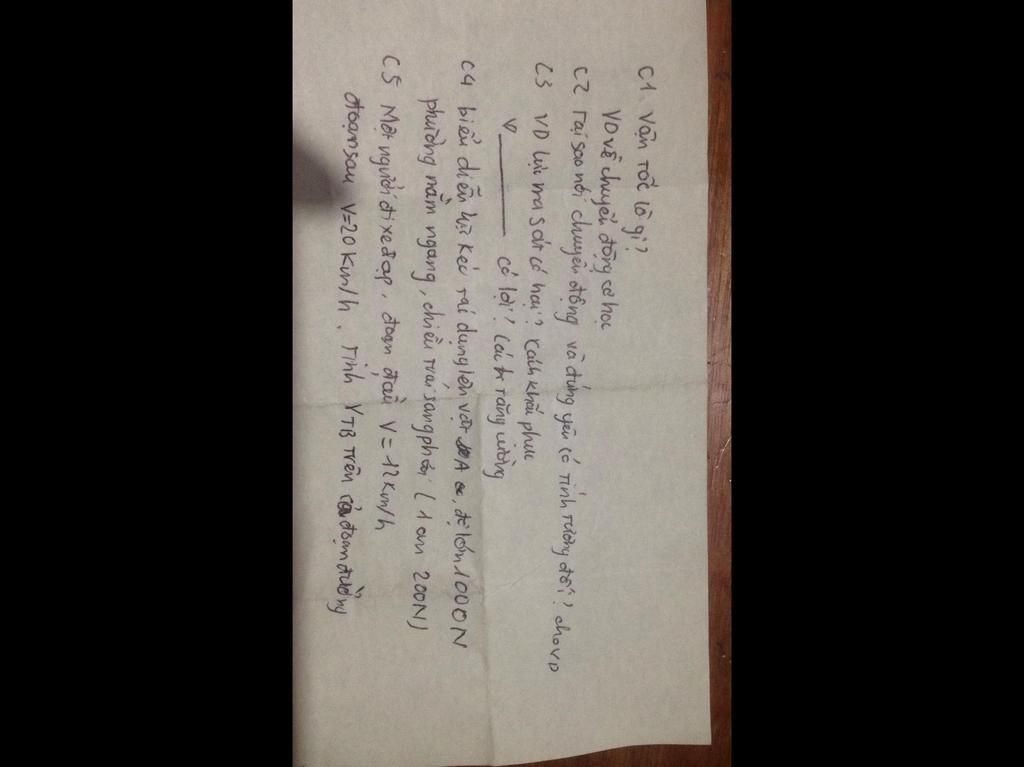 C1. Vận tốc là gì?
VD về chuyển động cơ học
C2 Tại sao nói chuyển động và đứng yên có tính tương đối? cho VD
C3 VD lực ma sát có hại? cách khắc phục
có lợi? Cách tăng cường
C4 biểu diễn lực kéo tác dụng lên vật A, độ lớn 1000N
phương nằm ngang, chiều trái sang phải (1cm 200N)
C5 Một người đi xe đạp, đoạn đầu V=12km/h
đoạn sau V=20Km/h. Tính VTB trên cả đoạn đường